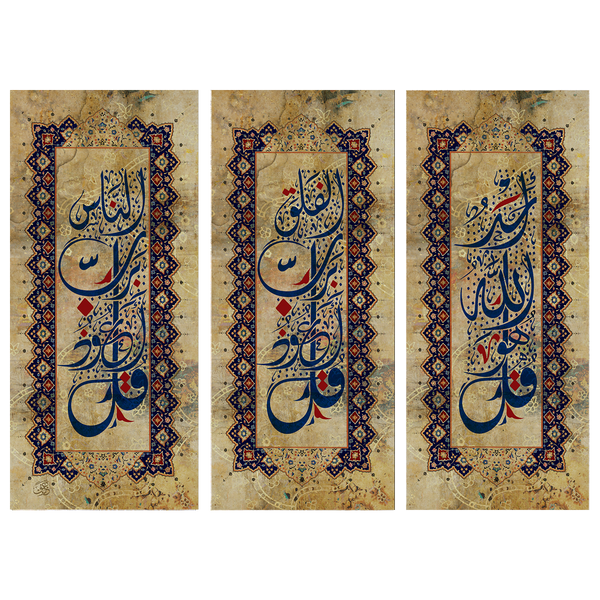 قل هو الله أحد
قل أعوذ برب الفلق
قل أعوذ برب الناس